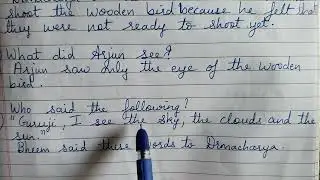 shoot the wooden bird because he felt that
they were not ready to shoot yet.
What did Arjun see?
Arjun saw only the eye of the wooden
bird.
Who said the following?
"Guruji, I see the sky, the clouds and the
sun."
Bheem said these words to Dronacharya.